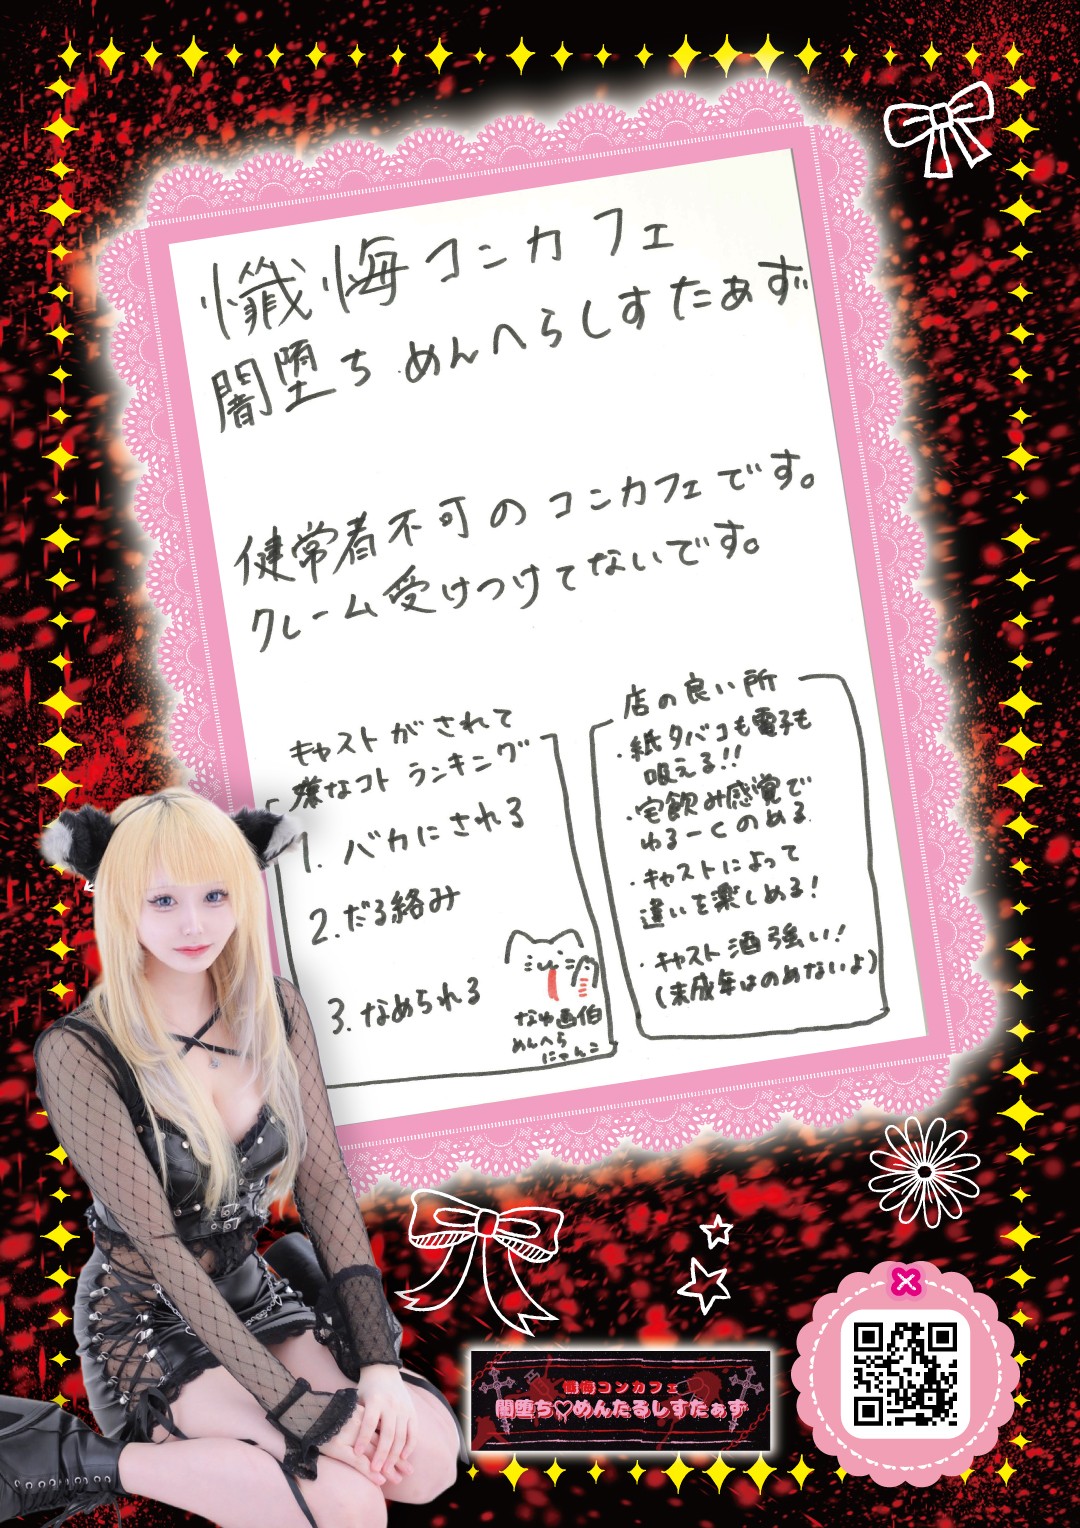 懺悔コンカフェ
闇堕ちめんへらしすたぁず
健常者不可のコンカフェです。
クレーム受けつけてないです。
キャストがされて
嫌なコトランキング
1. バカにされる
2. だる絡み
3. なめられる
なゆ画伯
めんへら
にゃんこ
店の良い所
・紙タバコも電子も
吸える!!
・宅飲み感覚で
ゆるーくのめる
・キャストによって
違いを楽しめる!
・キャスト酒強い!
(未成年はのめないよ)
懺悔コンカフェ
闇堕ち♡めんたるしすたぁず